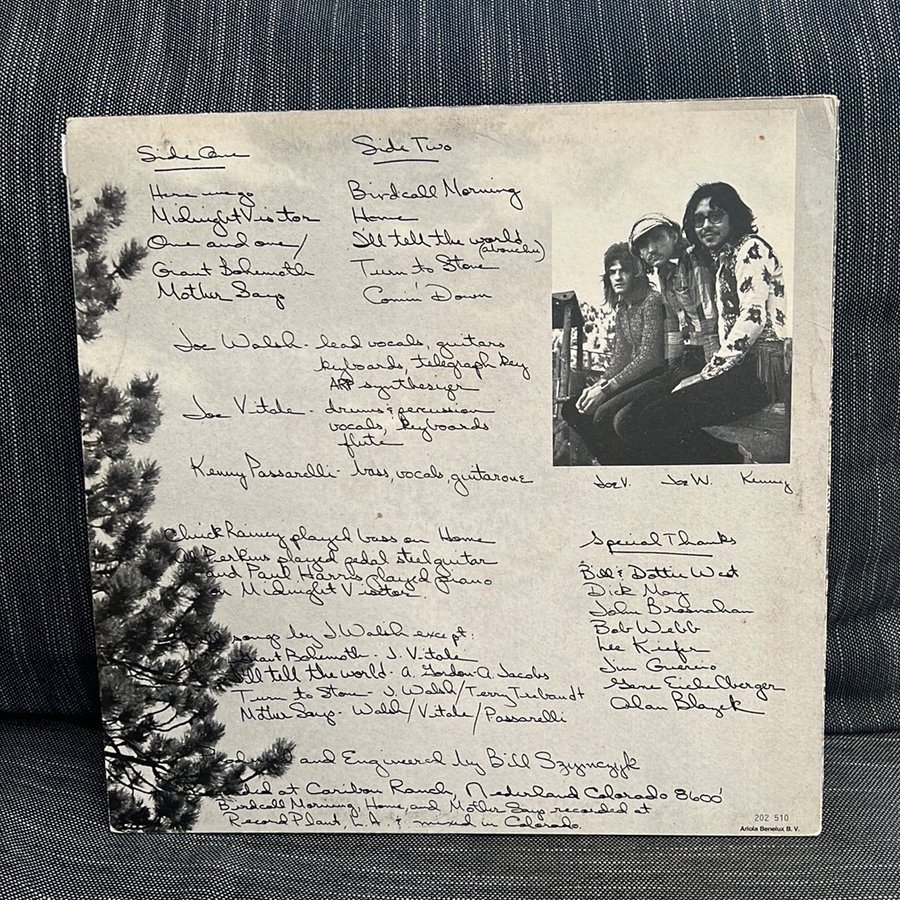 Side One
Here we go
Midnight Visitor
One and one/
Giant Bohemoth
Mother Says
Side Two
Birdcall Morning
Home
I'll tell the world
(aboutchu)
Turn to Stone
Comin' Down
Joe Walsh - lead vocals, guitars
keyboards, telegraph key
ARP synthesizer
Joe Vitale - drums & percussion
vocals, keyboards
flute
Kenny Passarelli - bass, vocals, guitarone
Joe V. Joe W. Kenny
Chuck Rainey played bass on Home
Al Perkins played pedal steel guitar
and Paul Harris played piano
on Midnight Visitor.
songs by J Walsh except:
Giant Bohemoth - J. Vitale
I'll tell the world - A. Gordon - A Jacobs
Turn to Stone - J. Walsh/Terry Trebaudt
Mother Says - Walsh/Vitale/Passarelli
and Engineered by Bill Szymczyk
at Caribou Ranch, Nederland Colorado 8600'
Birdcall Morning, Home, and Mother Say recorded at
Record Plant, L.A. & mixed in Colorado.
Special Thanks
Bill & Dottie West
Dick May
John Brosnahan
Bob Webb
Lee Kiefer
Jim Guercio
Gene Eichelberger
Alan Blazek
202 510
Ariola Benelux B. V.